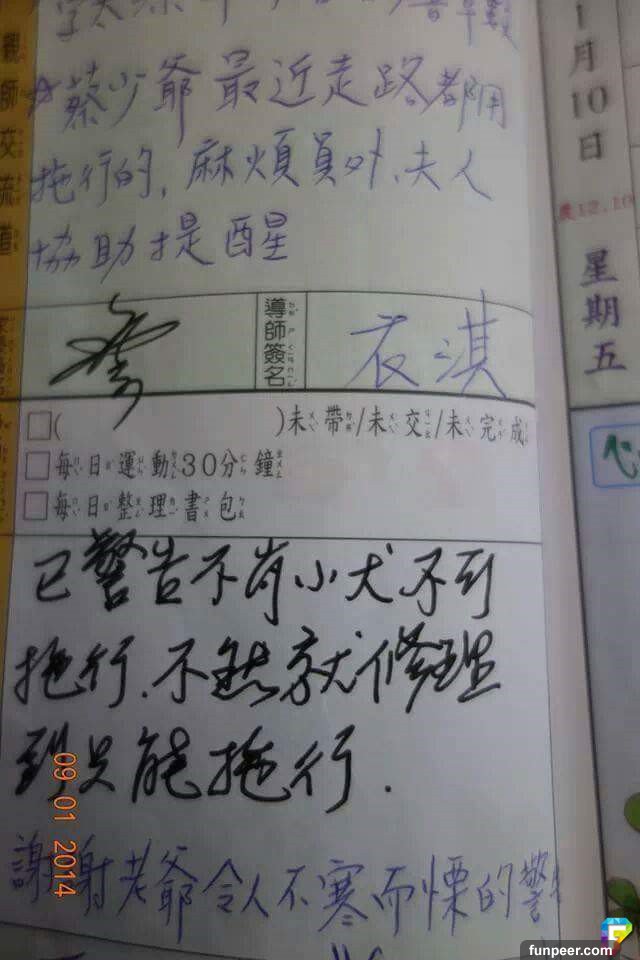 蔡少爺最近走路都用
拖行的,麻煩員外、夫人
協助提醒
親師交流道
導師簽名
衣淇
□( )未帶/未交/未完成
□每日運動30分鐘
□每日整理書包
已警告不肖小犬不可
拖行.不然就修理
到只能拖行.
謝謝老爺令人不寒而慄的警
09 01 2014
1月10日
農12.10
星期五
funpeer.com